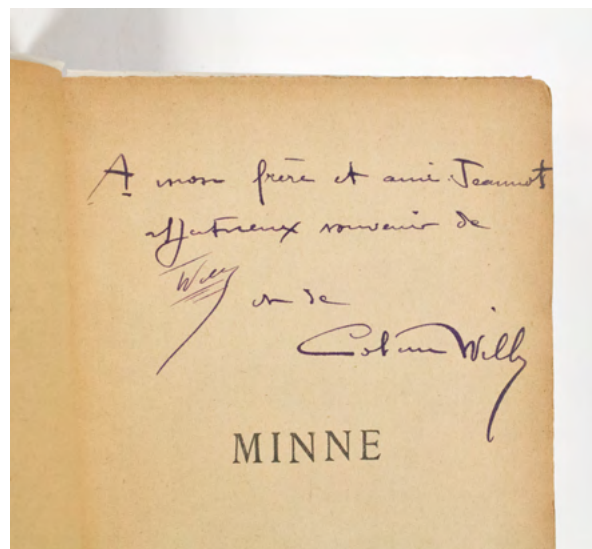 A mon frère et ami Jeannot
affectueux souvenir de
Willy
et de
Colette Willy
MINNE